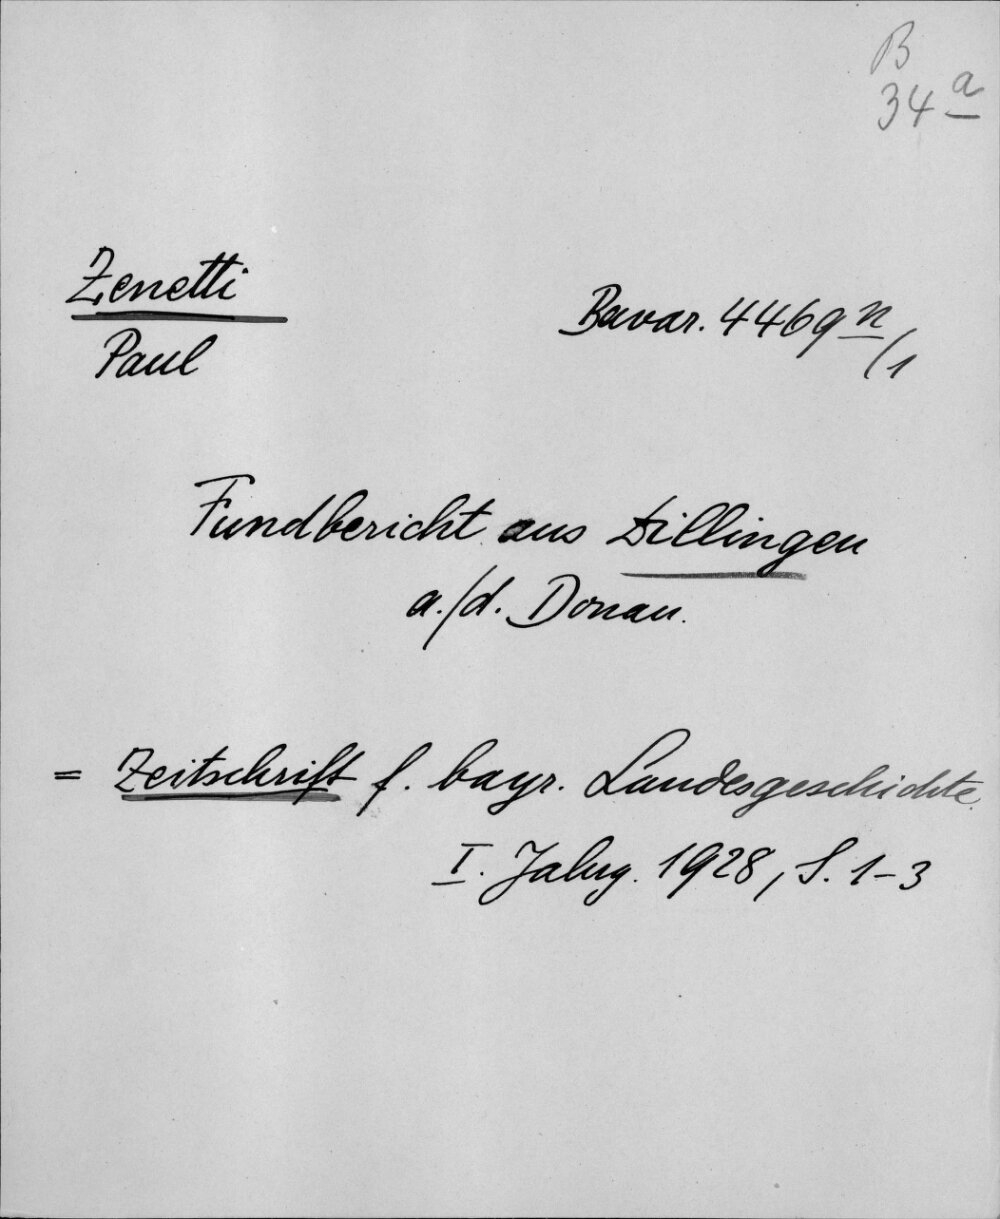 B
34 a
Zenetti
Paul
Bavar. 4469 n/1
Fundbericht aus Dillingen
a./d. Donau.
= Zeitschrift f. bayr. Landesgeschichte
I. Jahrg. 1928, S. 1-3